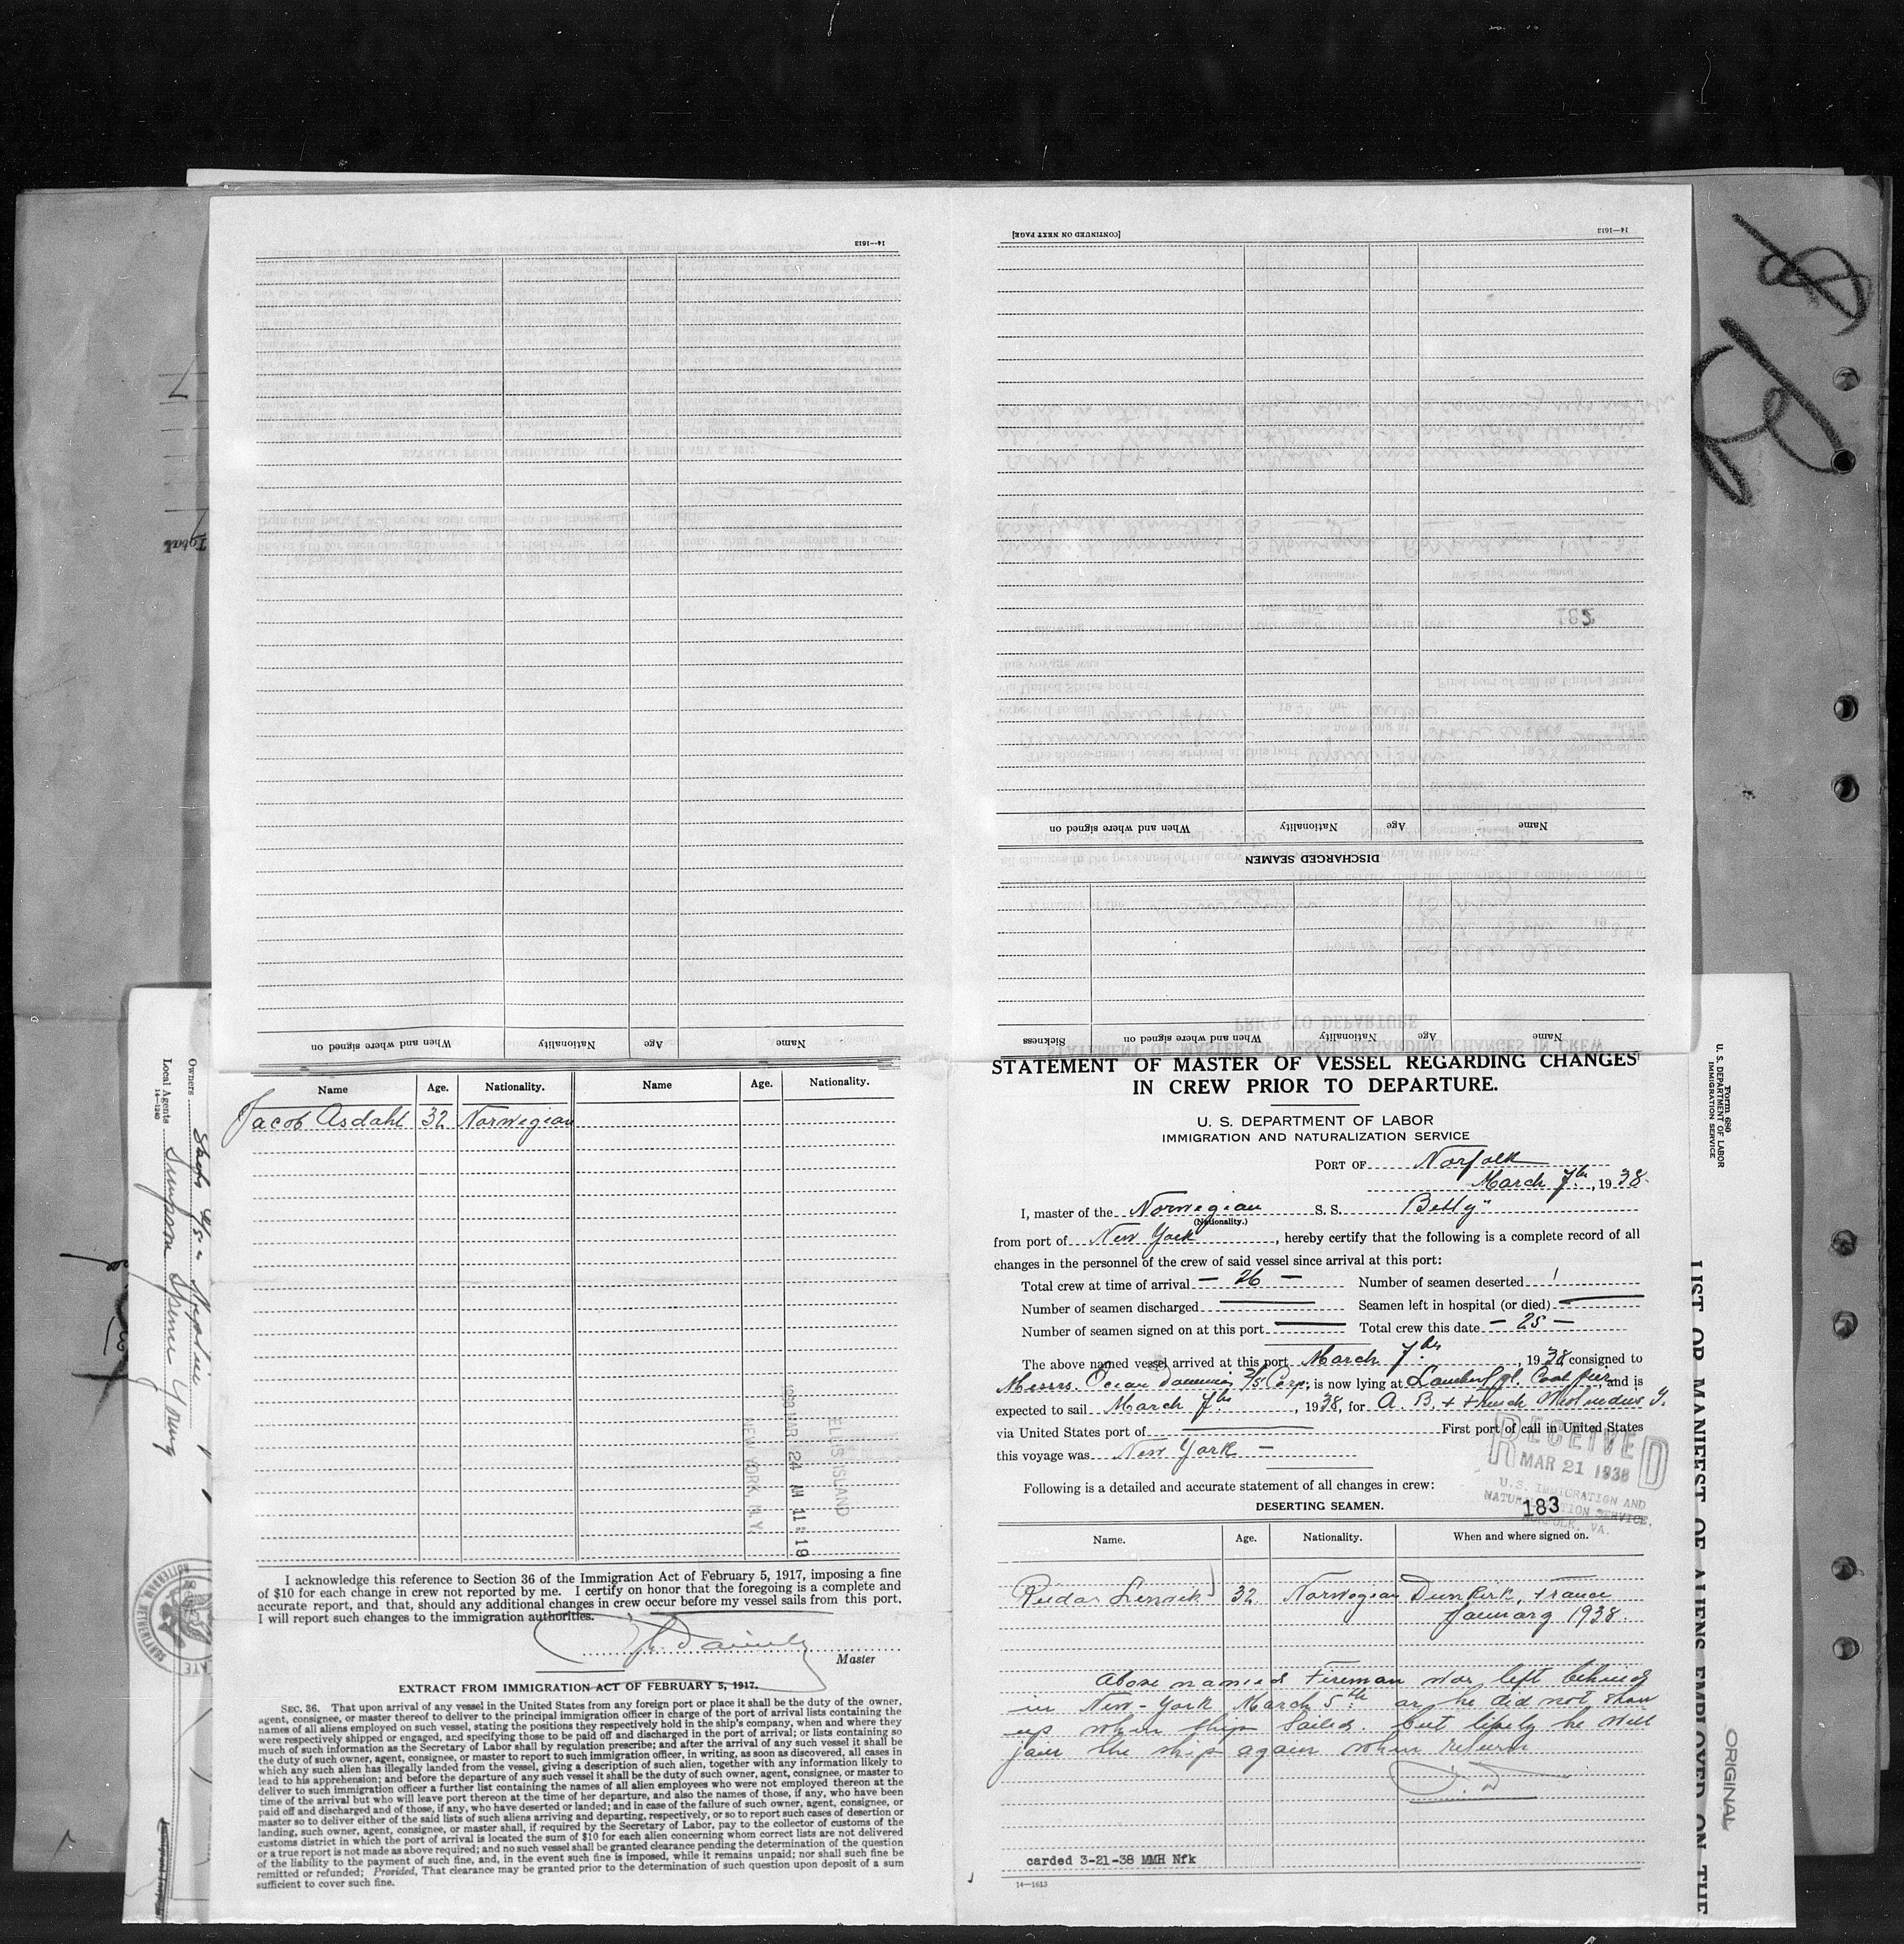 [CONTINUED ON NEXT PAGE]
14—1613
14—1613
When and where signed on
Nationality
Age
Name
DISCHARGED SEAMEN
Sickness
When and where signed on
Age
Nationality
Name
When and where signed on
Nationality
Age
Name
Total
Name
Age.
Nationality.
Name
Age.
Nationality.
Jacob Asdahl
32
Norwegian
ELLIS ISLAND
1938 MAR 24 AM 11:19
NEW YORK, N.Y.
I acknowledge this reference to Section 36 of the Immigration Act of February 5, 1917, imposing a fine
of $10 for each change in crew not reported by me. I certify on honor that the foregoing is a complete and
accurate report, and that, should any additional changes in crew occur before my vessel sails from this port,
I will report such changes to the immigration authorities.
Master
EXTRACT FROM IMMIGRATION ACT OF FEBRUARY 5, 1917.
SEC. 36. That upon arrival of any vessel in the United States from any foreign port or place it shall be the duty of the owner,
agent, consignee, or master thereof to deliver to the principal immigration officer in charge of the port of arrival lists containing the
names of all aliens employed on such vessel, stating the positions they respectively hold in the ship's company, when and where they
were respectively shipped or engaged, and specifying those to be paid off and discharged in the port of arrival; or lists containing so
much of such information as the Secretary of Labor shall by regulation prescribe; and after the arrival of any such vessel it shall be
the duty of such owner, agent, consignee, or master to report to such immigration officer, in writing, as soon as discovered, all cases in
which any such alien has illegally landed from the vessel, giving a description of such alien, together with any information likely to
lead to his apprehension; and before the departure of any such vessel it shall be the duty of such owner, agent, consignee, or master to
deliver to such immigration officer a further list containing the names of all alien employees who were not employed thereon at the
time of the arrival but who will leave port thereon at the time of her departure, and also the names of those, if any, who have been
paid off and discharged and of those, if any, who have deserted or landed; and in case of the failure of such owner, agent, consignee, or
master so to deliver either of the said lists of such aliens arriving and departing, respectively, or so to report such cases of desertion or
landing, such owner, agent, consignee, or master shall, if required by the Secretary of Labor, pay to the collector of customs of the
customs district in which the port of arrival is located the sum of $10 for each alien concerning whom correct lists are not delivered
or a true report is not made as above required; and no such vessel shall be granted clearance pending the determination of the question
of the liability to the payment of such fine, and, in the event such fine is imposed, while it remains unpaid; nor shall such fine be
remitted or refunded; Provided, That clearance may be granted prior to the determination of such question upon deposit of a sum
sufficient to cover such fine.
STATEMENT OF MASTER OF VESSEL REGARDING CHANGES
IN CREW PRIOR TO DEPARTURE.
U. S. DEPARTMENT OF LABOR
IMMIGRATION AND NATURALIZATION SERVICE
PORT OF Norfolk
March 7th, 1938
I, master of the Norwegian S. S. Betty"
(Nationality.)
from port of New York, hereby certify that the following is a complete record of all
changes in the personnel of the crew of said vessel since arrival at this port:
Total crew at time of arrival — 26 — Number of seamen deserted 1
Number of seamen discharged Seamen left in hospital (or died)
Number of seamen signed on at this port Total crew this date — 25 —
The above named vessel arrived at this port March 7th, 1938, consigned to
Messrs. Ocean Dominion S/S Corp; is now lying at Lamberts pt. Coal pier, and is
expected to sail March 7th, 1938, for
via United States port of First port of call in United States
this voyage was New York —
RECEIVED
MAR 21 1938
U.S. IMMIGRATION AND
NATURALIZATION SERVICE.
NORFOLK, VA.
Following is a detailed and accurate statement of all changes in crew:
183
DESERTING SEAMEN.
Name.
Age.
Nationality.
When and where signed on.
32 Norwegian Dunkerk, France
January 1938.
Above named Fireman was left behind
in New-York March 5th as he did not show
up when ship sailed. but likely he will
join the ship again when return
carded 3-21-38 MMH Nfk
14—1613
Owners
Local Agents Simpson Spence Young
14—1240
Form 680
U. S. DEPARTMENT OF LABOR
IMMIGRATION SERVICE
LIST OR MANIFEST OF ALIENS EMPLOYED ON THE
ORIGINAL